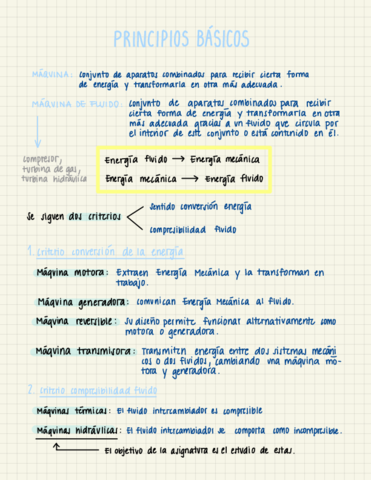 PRINCIPIOS BÁSICOS
MÁQUINA: Conjunto de aparatos combinados para recibir cierta forma
de energía y transformarla en otra más adecuada.
MÁQUINA DE FLUIDO: Conjunto de aparatos combinados para recibir
cierta forma de energía y transformarla en otra
más adecuada gracias a un fluido que circula por
el interior de este conjunto o está contenido en él.
compresor,
turbina de gas,
turbina hidráulica
Energía fluido → Energía mecánica
Energía mecánica → Energía fluido
Se siguen dos criterios
Sentido conversión energía
Compresibilidad fluido
1. Criterio conversión de la energía
Máquina motora: Extraen Energía Mecánica y la transforman en
trabajo.
Máquina generadora: Comunican Energía Mecánica al fluido.
Máquina reversible: Su diseño permite funcionar alternativamente como
motora o generadora.
Máquina transmisora: Transmiten energía entre dos sistemas mecáni
cos o dos fluidos, cambiando una máquina mo-
tora y generadora.
2. Criterio compresibilidad fluido
Máquinas térmicas: El fluido intercambiador es compresible
Máquinas hidráulicas: El fluido intercambiador se comporta como incompresible.
El objetivo de la asignatura es el estudio de estas.